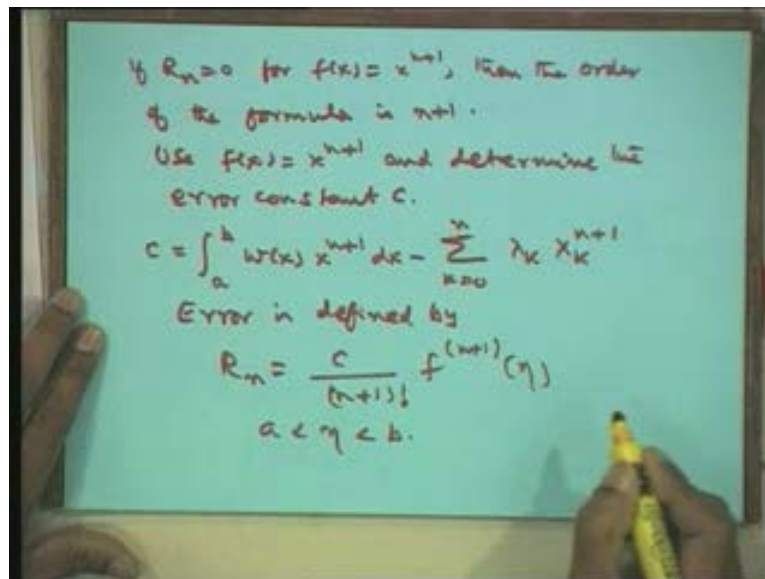 If Rₙ=0 for f(x)= xⁿ⁺¹, then the order
of the formula is n+1.
Use f(x)= xⁿ⁺¹ and determine the
error constant C.
C = ∫ₐᵇ w(x) xⁿ⁺¹ dx - ∑ₖ₌₀ⁿ λₖ xₖⁿ⁺¹
Error is defined by
Rₙ = C/(n+1)! f⁽ⁿ⁺¹⁾(η)
a < η < b.